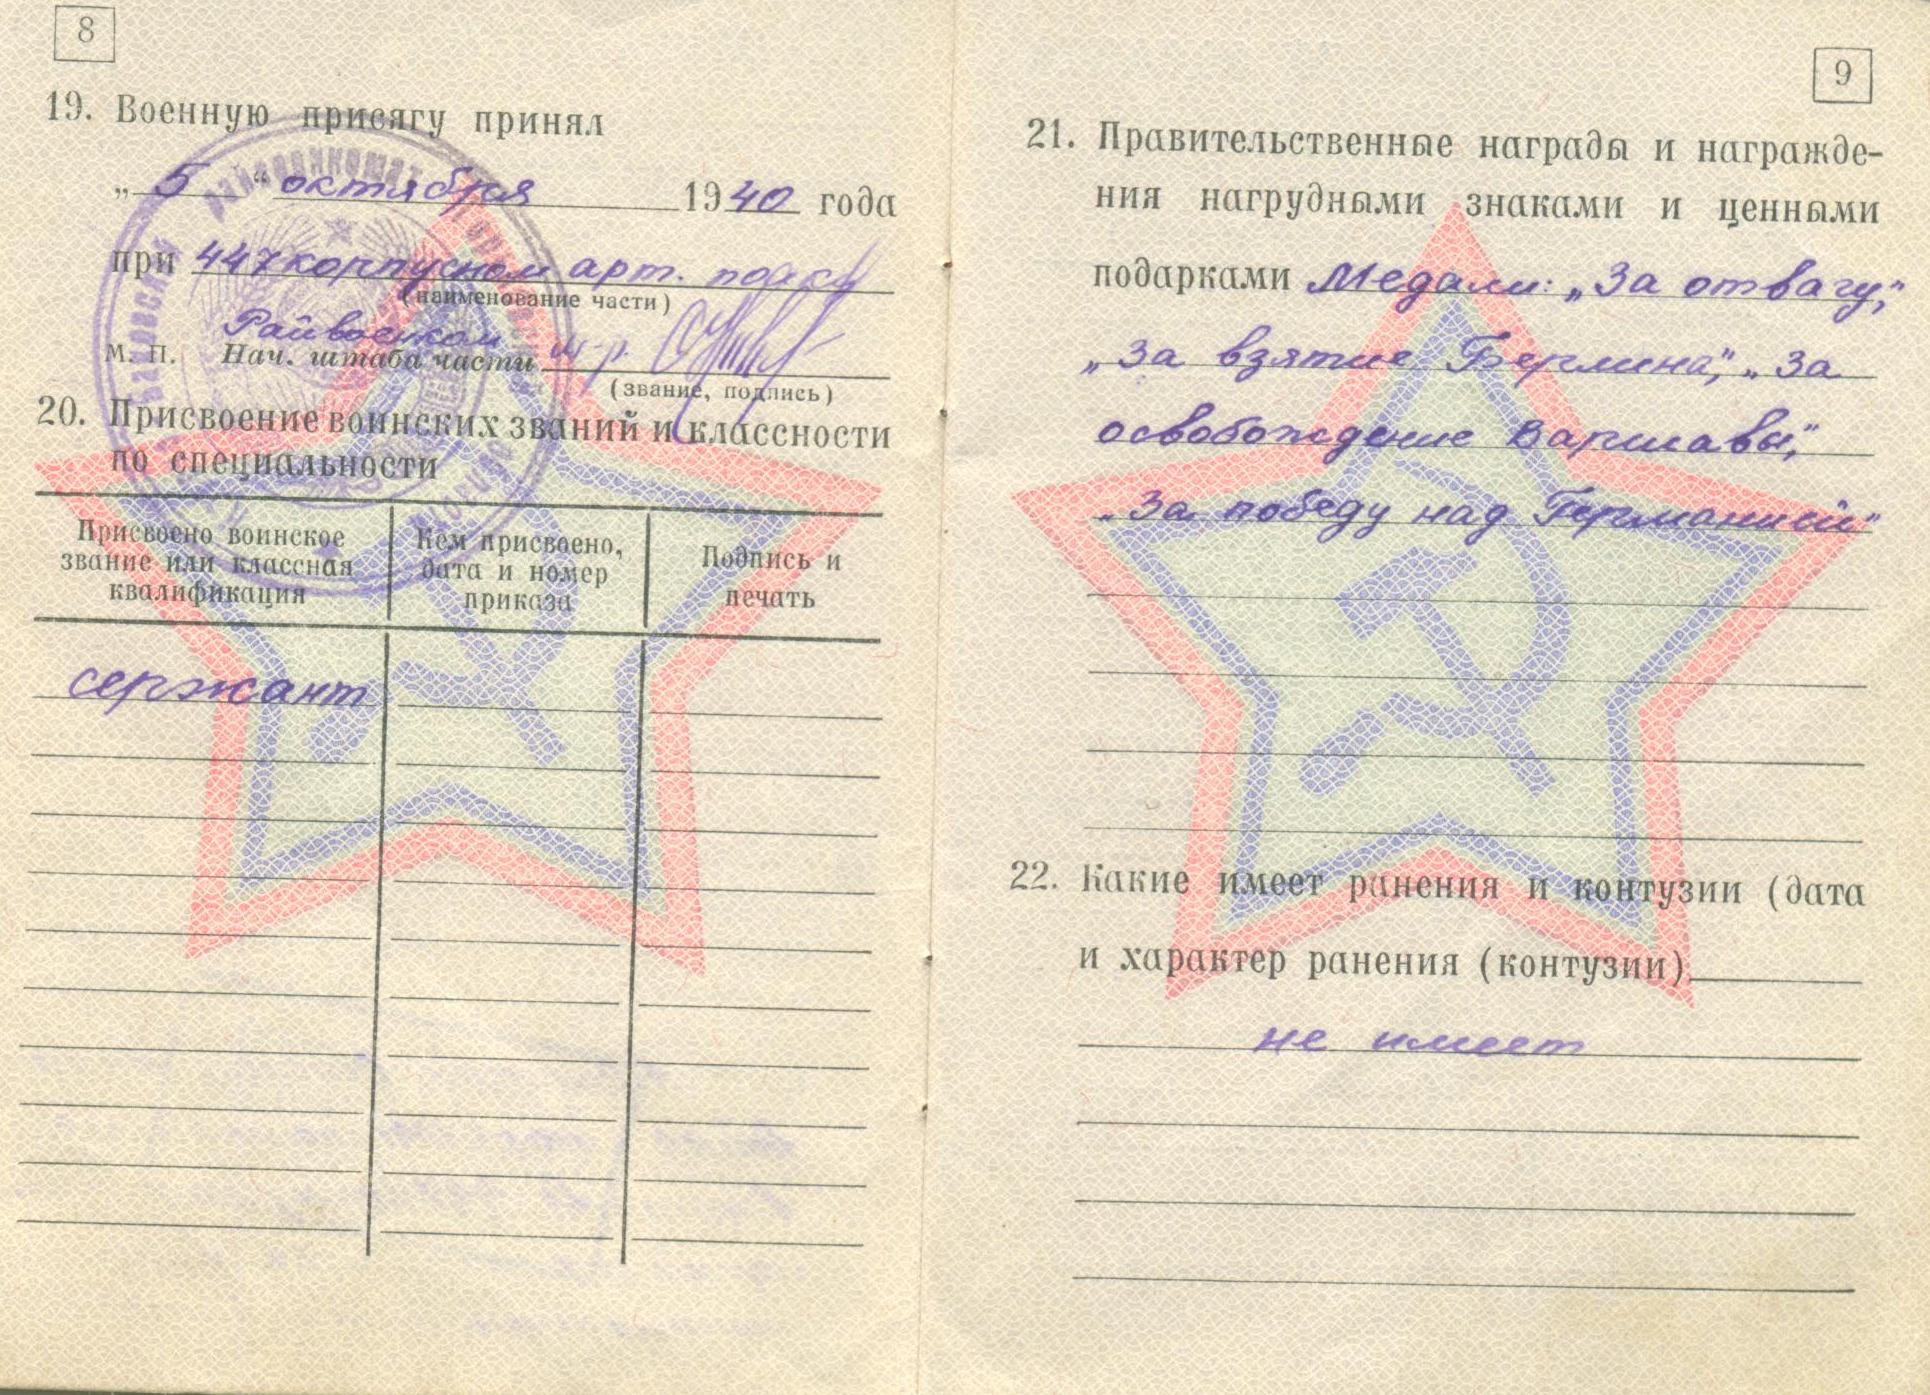 8
19. Военную присягу принял
„ 5 “ октября 1940 года
при 447 корпусном арт. полку
(наименование части)
Райвоенком
М. П. Нач. штаба части м-р.
(звание, подпись)
20. Присвоение воинских званий и классности
по специальности
Присвоено воинское
звание или классная
квалификация
Кем присвоено,
дата и номер
приказа
Подпись и
печать
сержант
9
21. Правительственные награды и награжде-
ния нагрудными знаками и ценными
подарками Медали: „За отвагу",
„За взятие Берлина", „За
освобождение Варшавы",
„За победу над Германией"
22. Какие имеет ранения и контузии (дата
и характер ранения (контузии)
не имеет